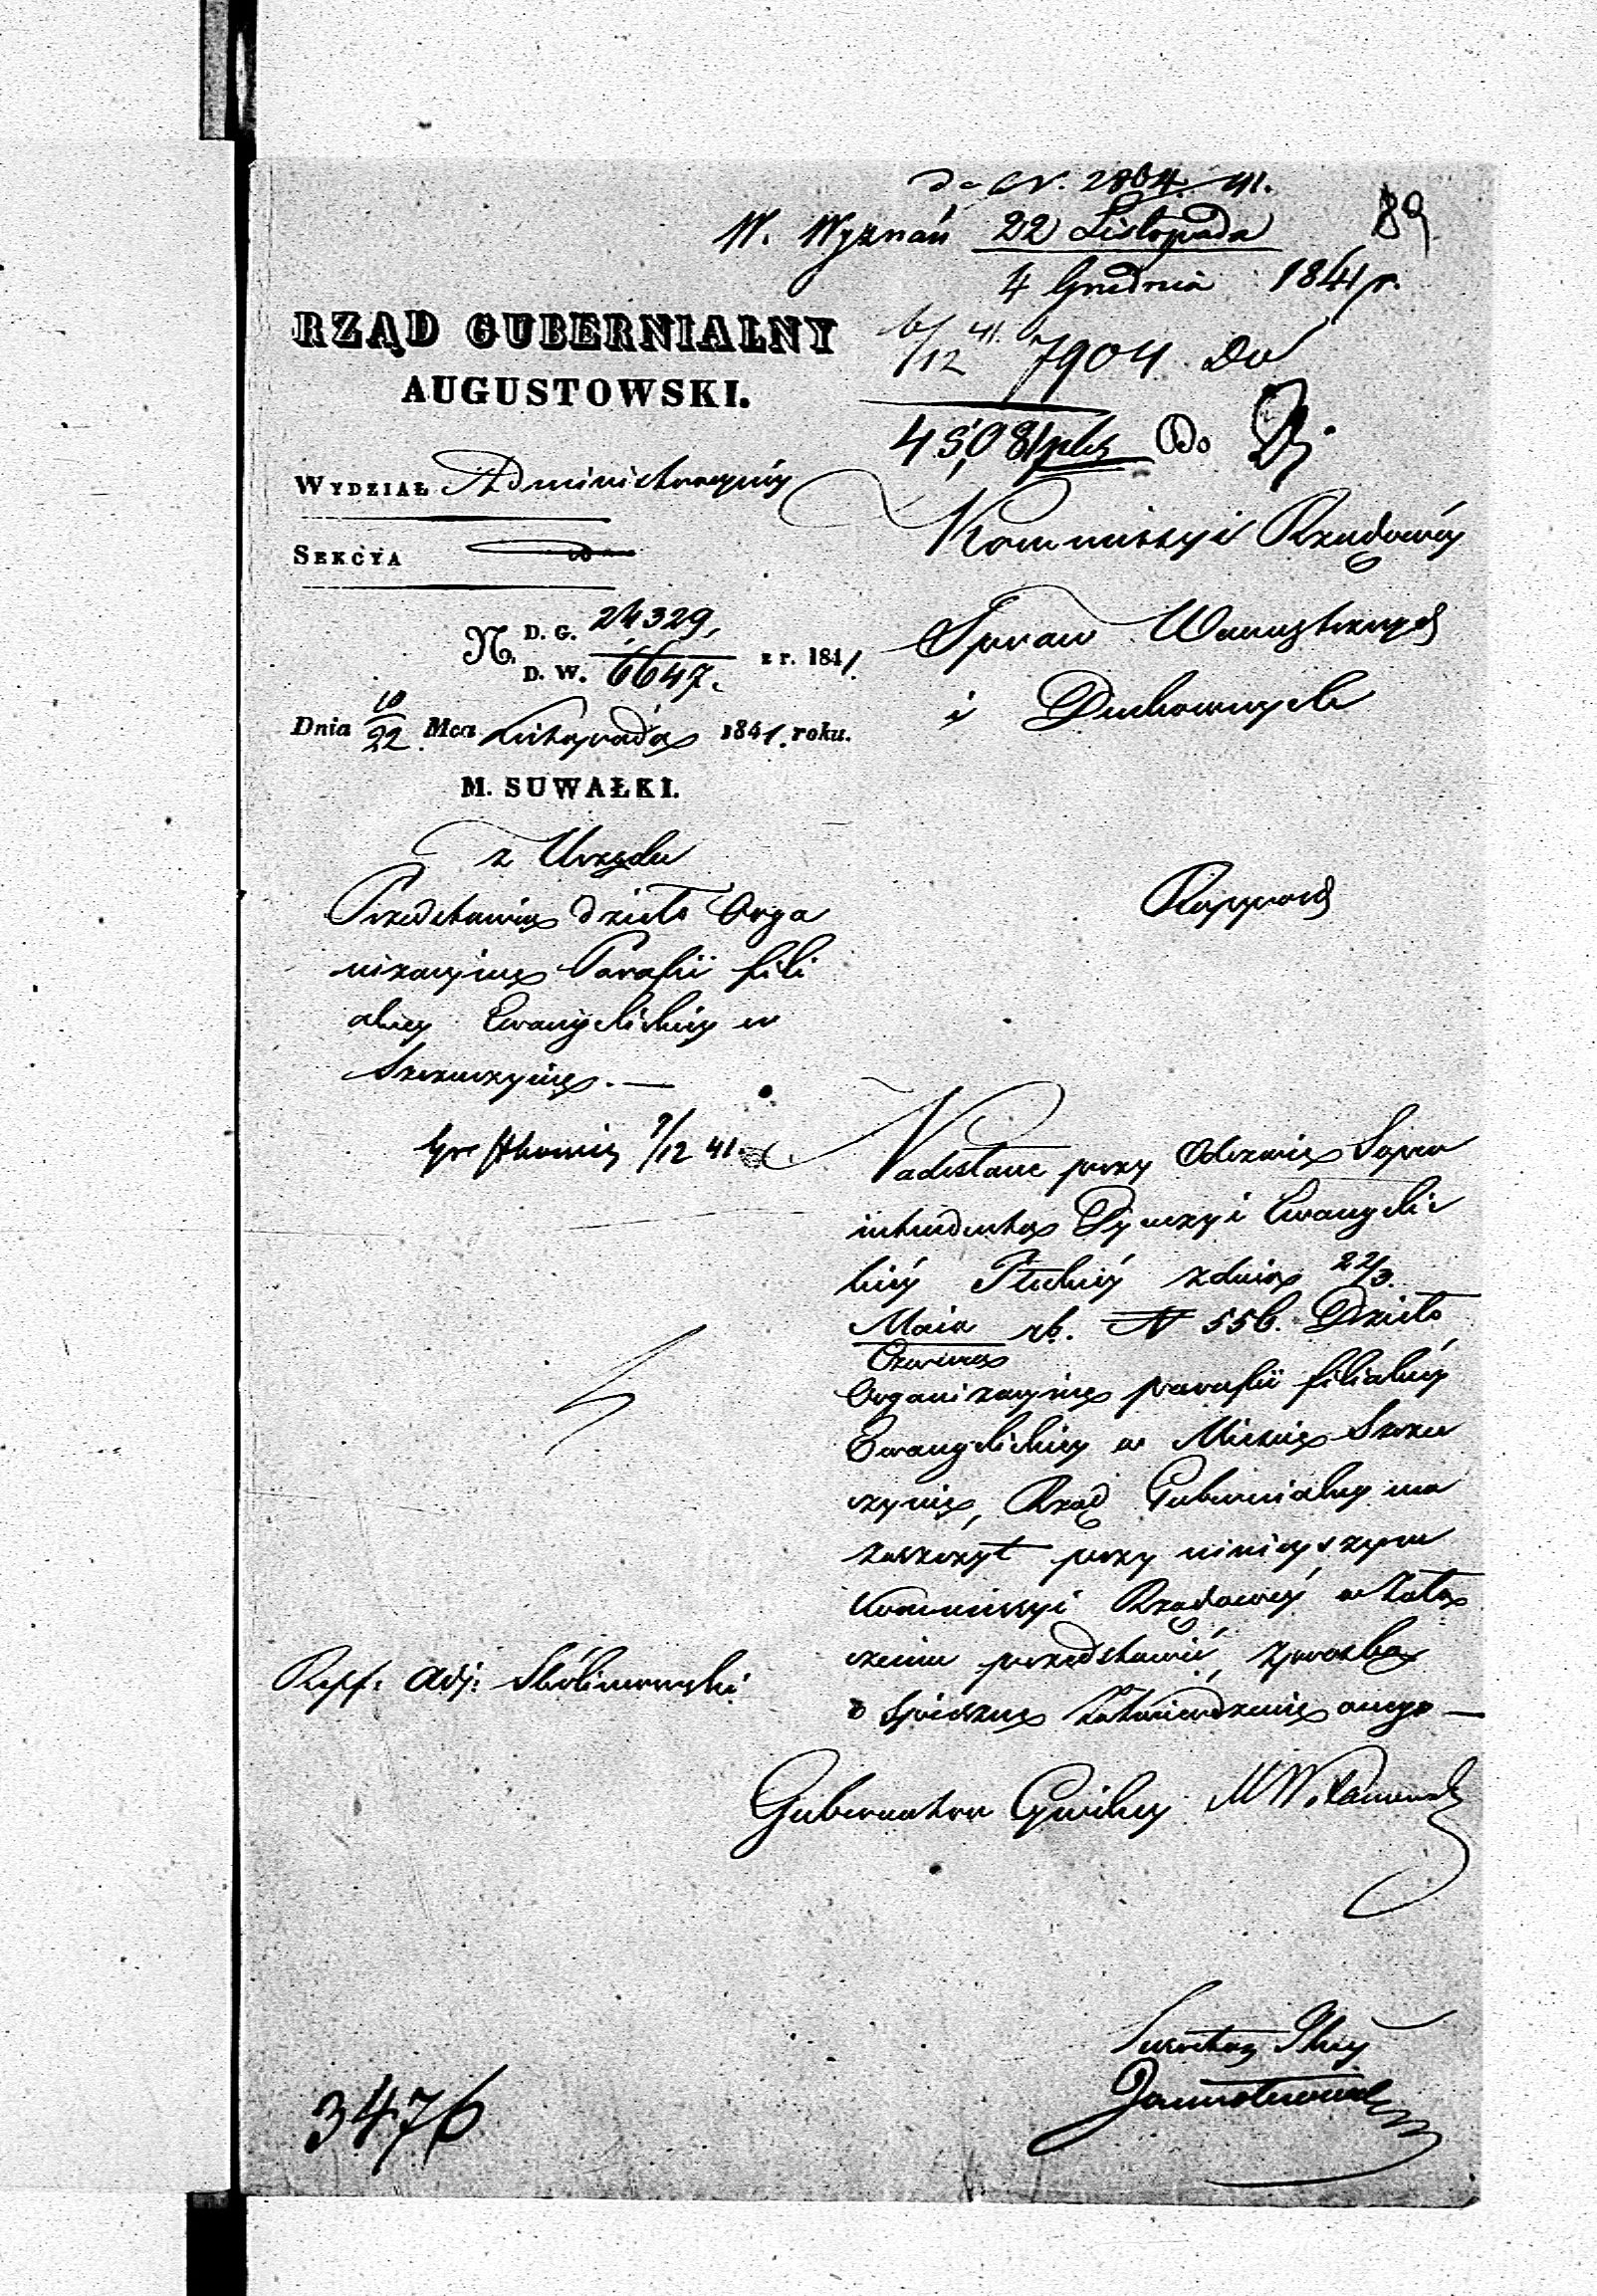 do N. 2864/41.
89
W. Wyznań 22 Listopada
4 Grudnia 1841 r.
RZĄD GUBERNIALNY
AUGUSTOWSKI.
6/12 41. 7904 Do
45,081/
Do
WYDZIAŁ Administracyiny
SEKCYA
Kommissyi Rządowéy
Spraw Wewnętrznych
i Duchownych
N. D. G. 24329,
D. W. 6647. z r. 1841.
Dnia 10/22 Mca Listopada 1841. roku.
M. SUWAŁKI.
z Urzędu
Przedstawia dzieło Orga
nizacyine Parafii fili
alney Ewangelickiey w
Szczuczynie. —
Rapport
9/12 41.
Nadesłane przy Odezwie Super
intendenta Dyecezyi Ewangelic
kiéy Płockiéy z dnia 22/3.
Maia rb. N 556. Dzieło
Czerwca
Organizacyine parafii filialnéy
Ewangelickiey w Mieście Szczu
czynie, Rząd Gubernialny ma
zaszczyt przy ninieyszym
Kommissyi Rządowéy w załą
czeniu przedstawić, z prozbą
o spieszne zatwierdzenie onego —
Reff. Adj:
Gubernator Cywilny
Sekretarz
3476